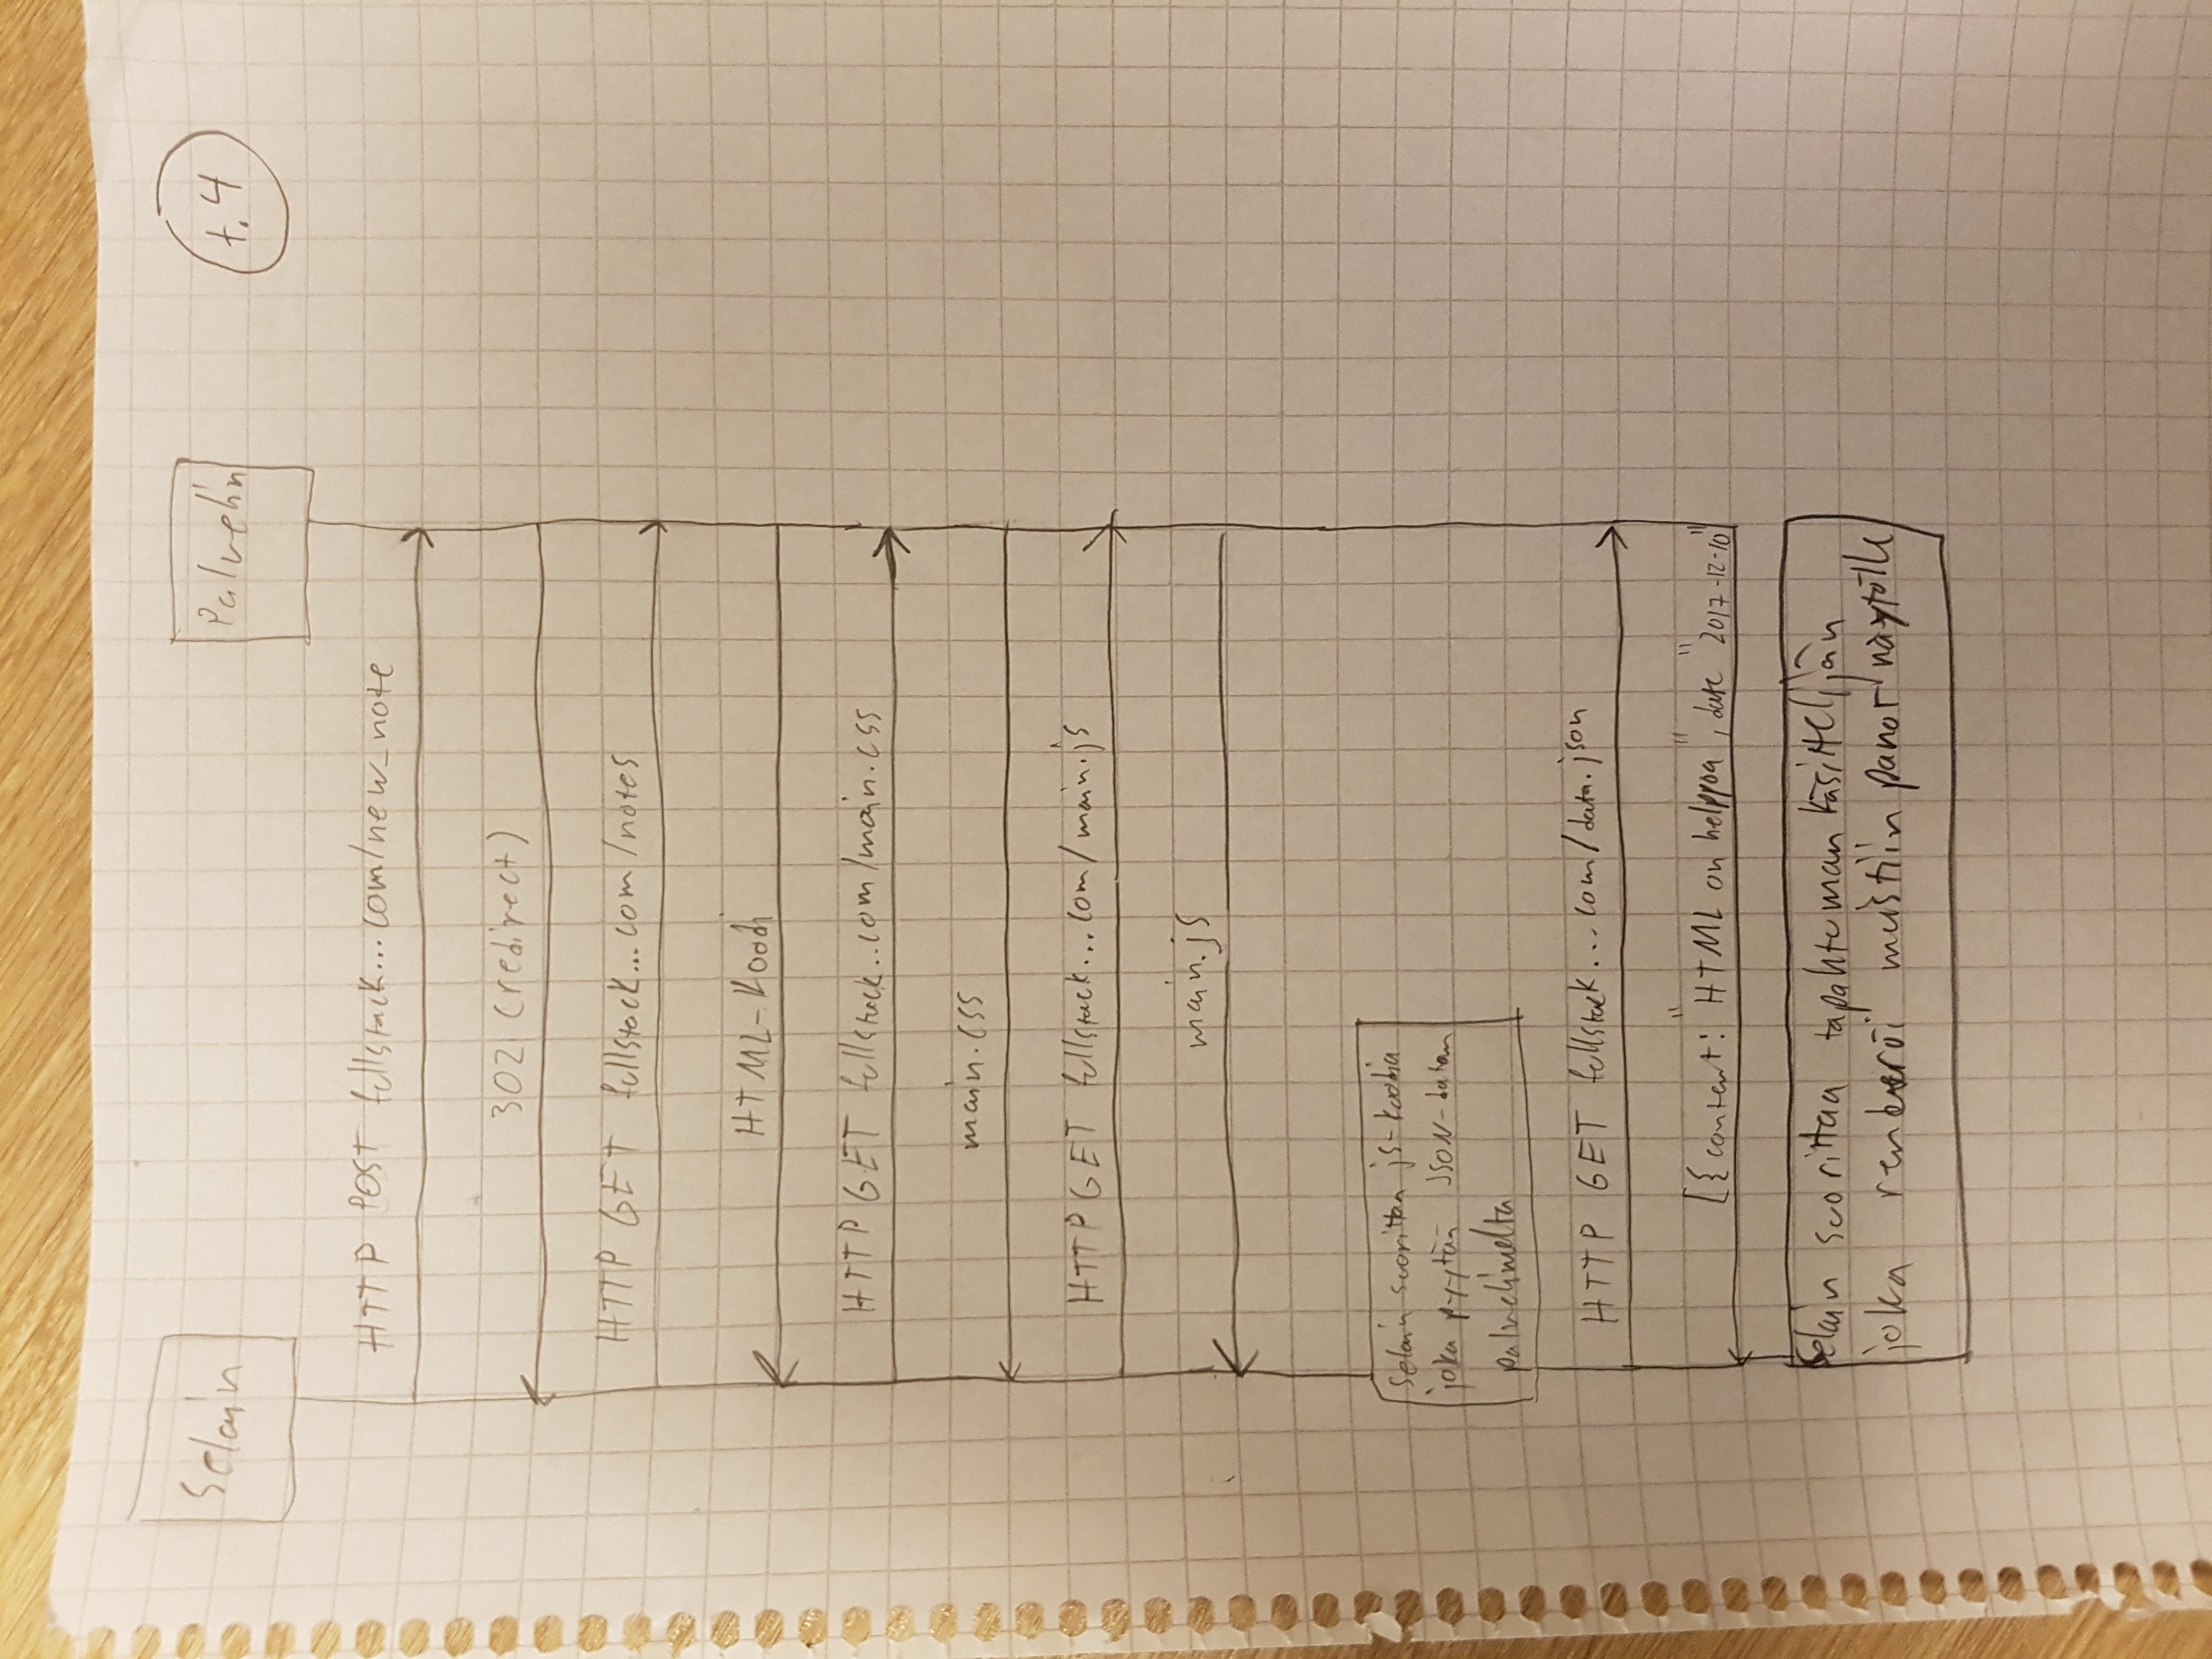 Selain
Palvelin
t. 4
HTTP POST fullstack...com/new_note
302 (redirect)
HTTP GET fullstack...com/notes
HTML-koodi
HTTP GET fullstack..com/main.css
main.css
HTTP GET fullstack...com/main.js
main.js
Selain suorittaa js-koodia
joka pyytää JSON-datan
palvelimelta
HTTP GET fullstack...com/data.json
[{content: "HTML on helppoa", date "2017-12-10"
Selain suorittaa tapahtuman käsittelijän
joka renderöi muistiin panot näytölle